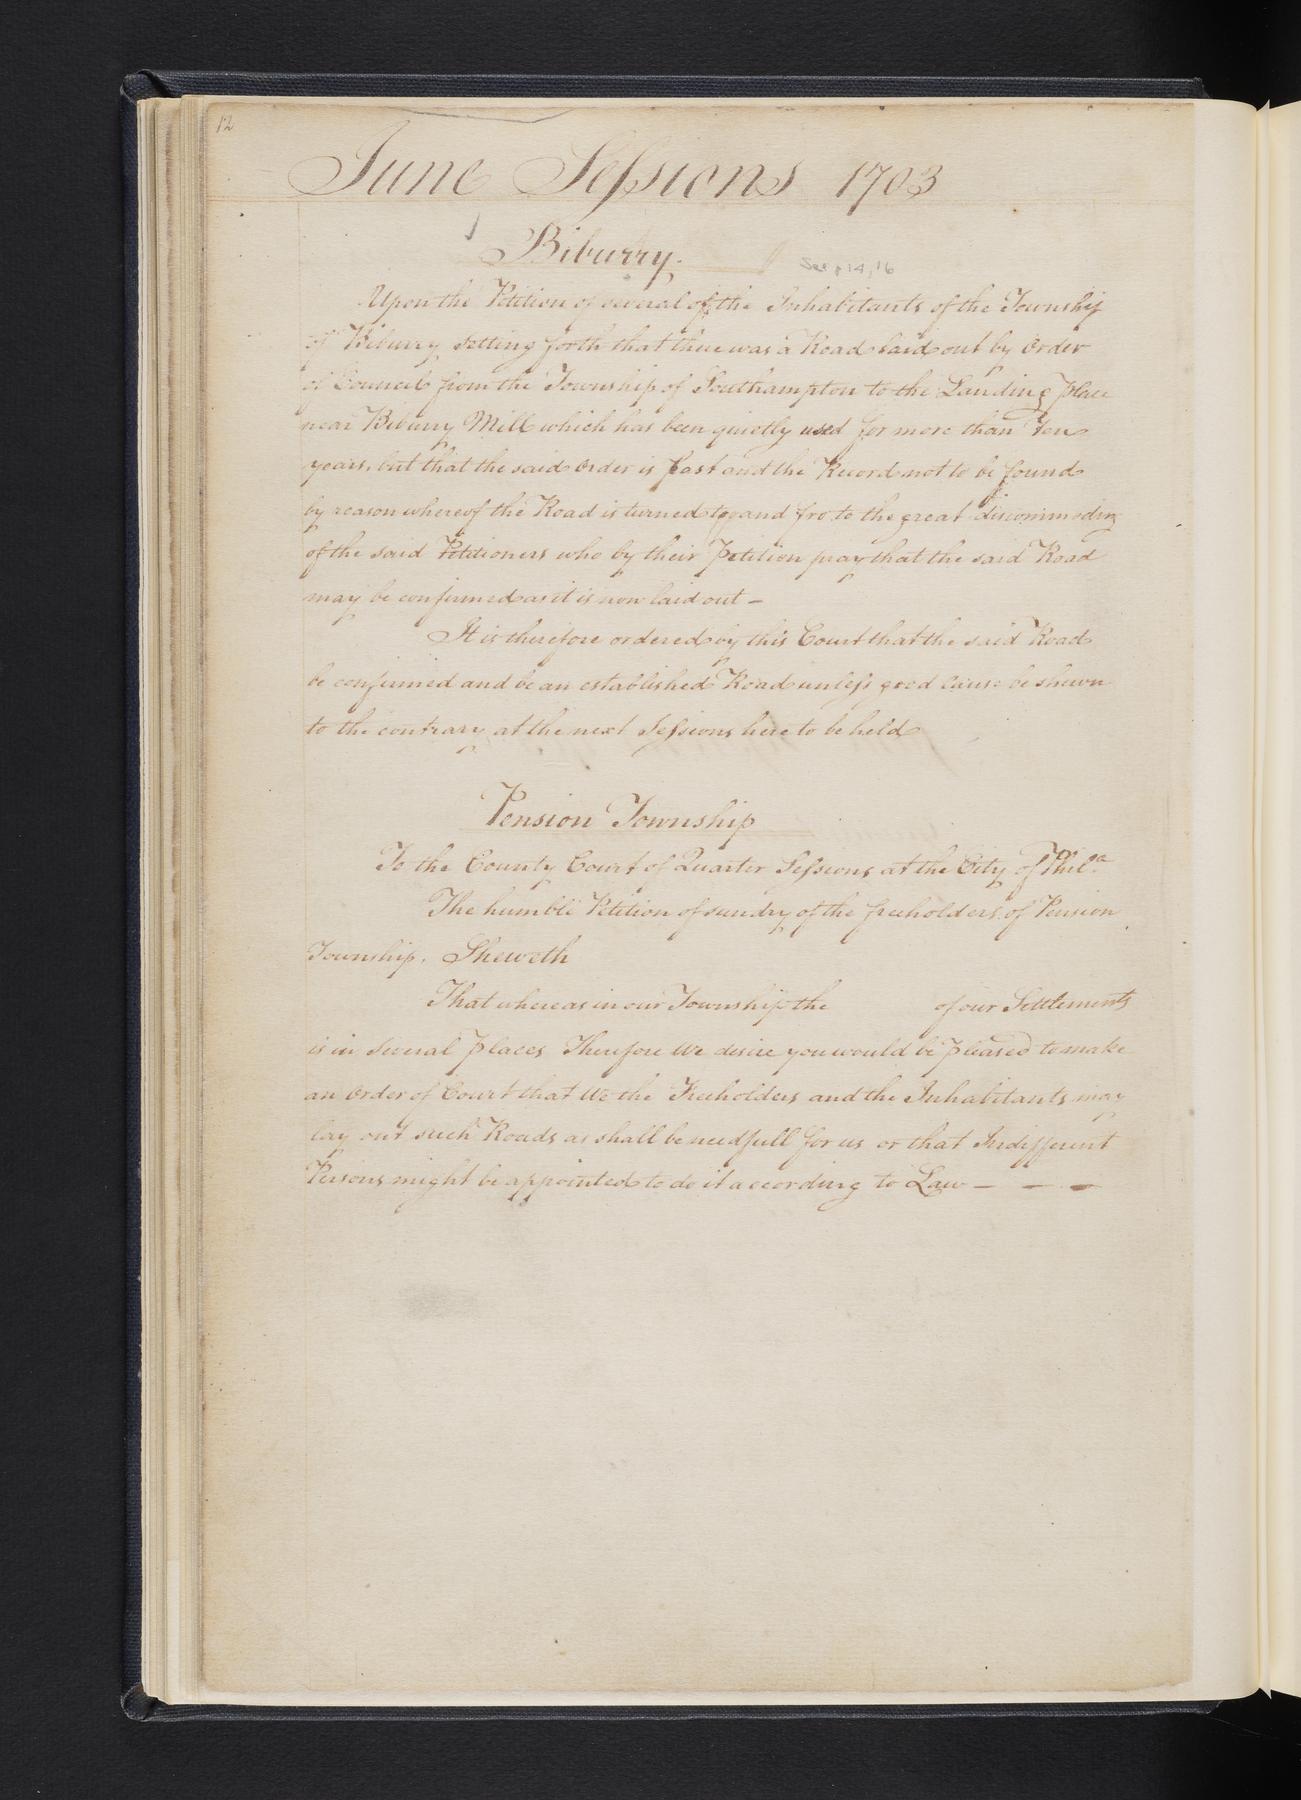 12
June Sessions 1703
Biburry.
See p 14, 16
Upon the Petition of several of the Inhabitants of the Township
of Biburry setting forth that there was a Road laid out by Order
of Council from the Township of Southampton to the Landing place
near Biburry Mill which has been quietly used for more than Ten
years, but that the said Order is past and the Record not to be found
by reason whereof the Road is turned to and fro to the great discommoding
of the said Petitioners who by their Petition pray that the said Road
may be confirmed as it is now laid out —
It is therefore ordered by this Court that the said Road
be confirmed and be an established Road unless good Cause be shewn
to the contrary at the next Sessions here to be held
Pension Township
To the County Court of Quarter Sessions at the City of Phila
The humble Petition of sundry of the freeholders of Pension
Township. Sheweth
That whereas in our Township the of our Settlements
is in Several places Therefore We desire you would be pleased to make
an Order of Court that We the Freeholders and the Inhabitants may
lay out such Roads as shall be needfull for us or that Indifferent
Persons might be appointed to do it according to Law — — —